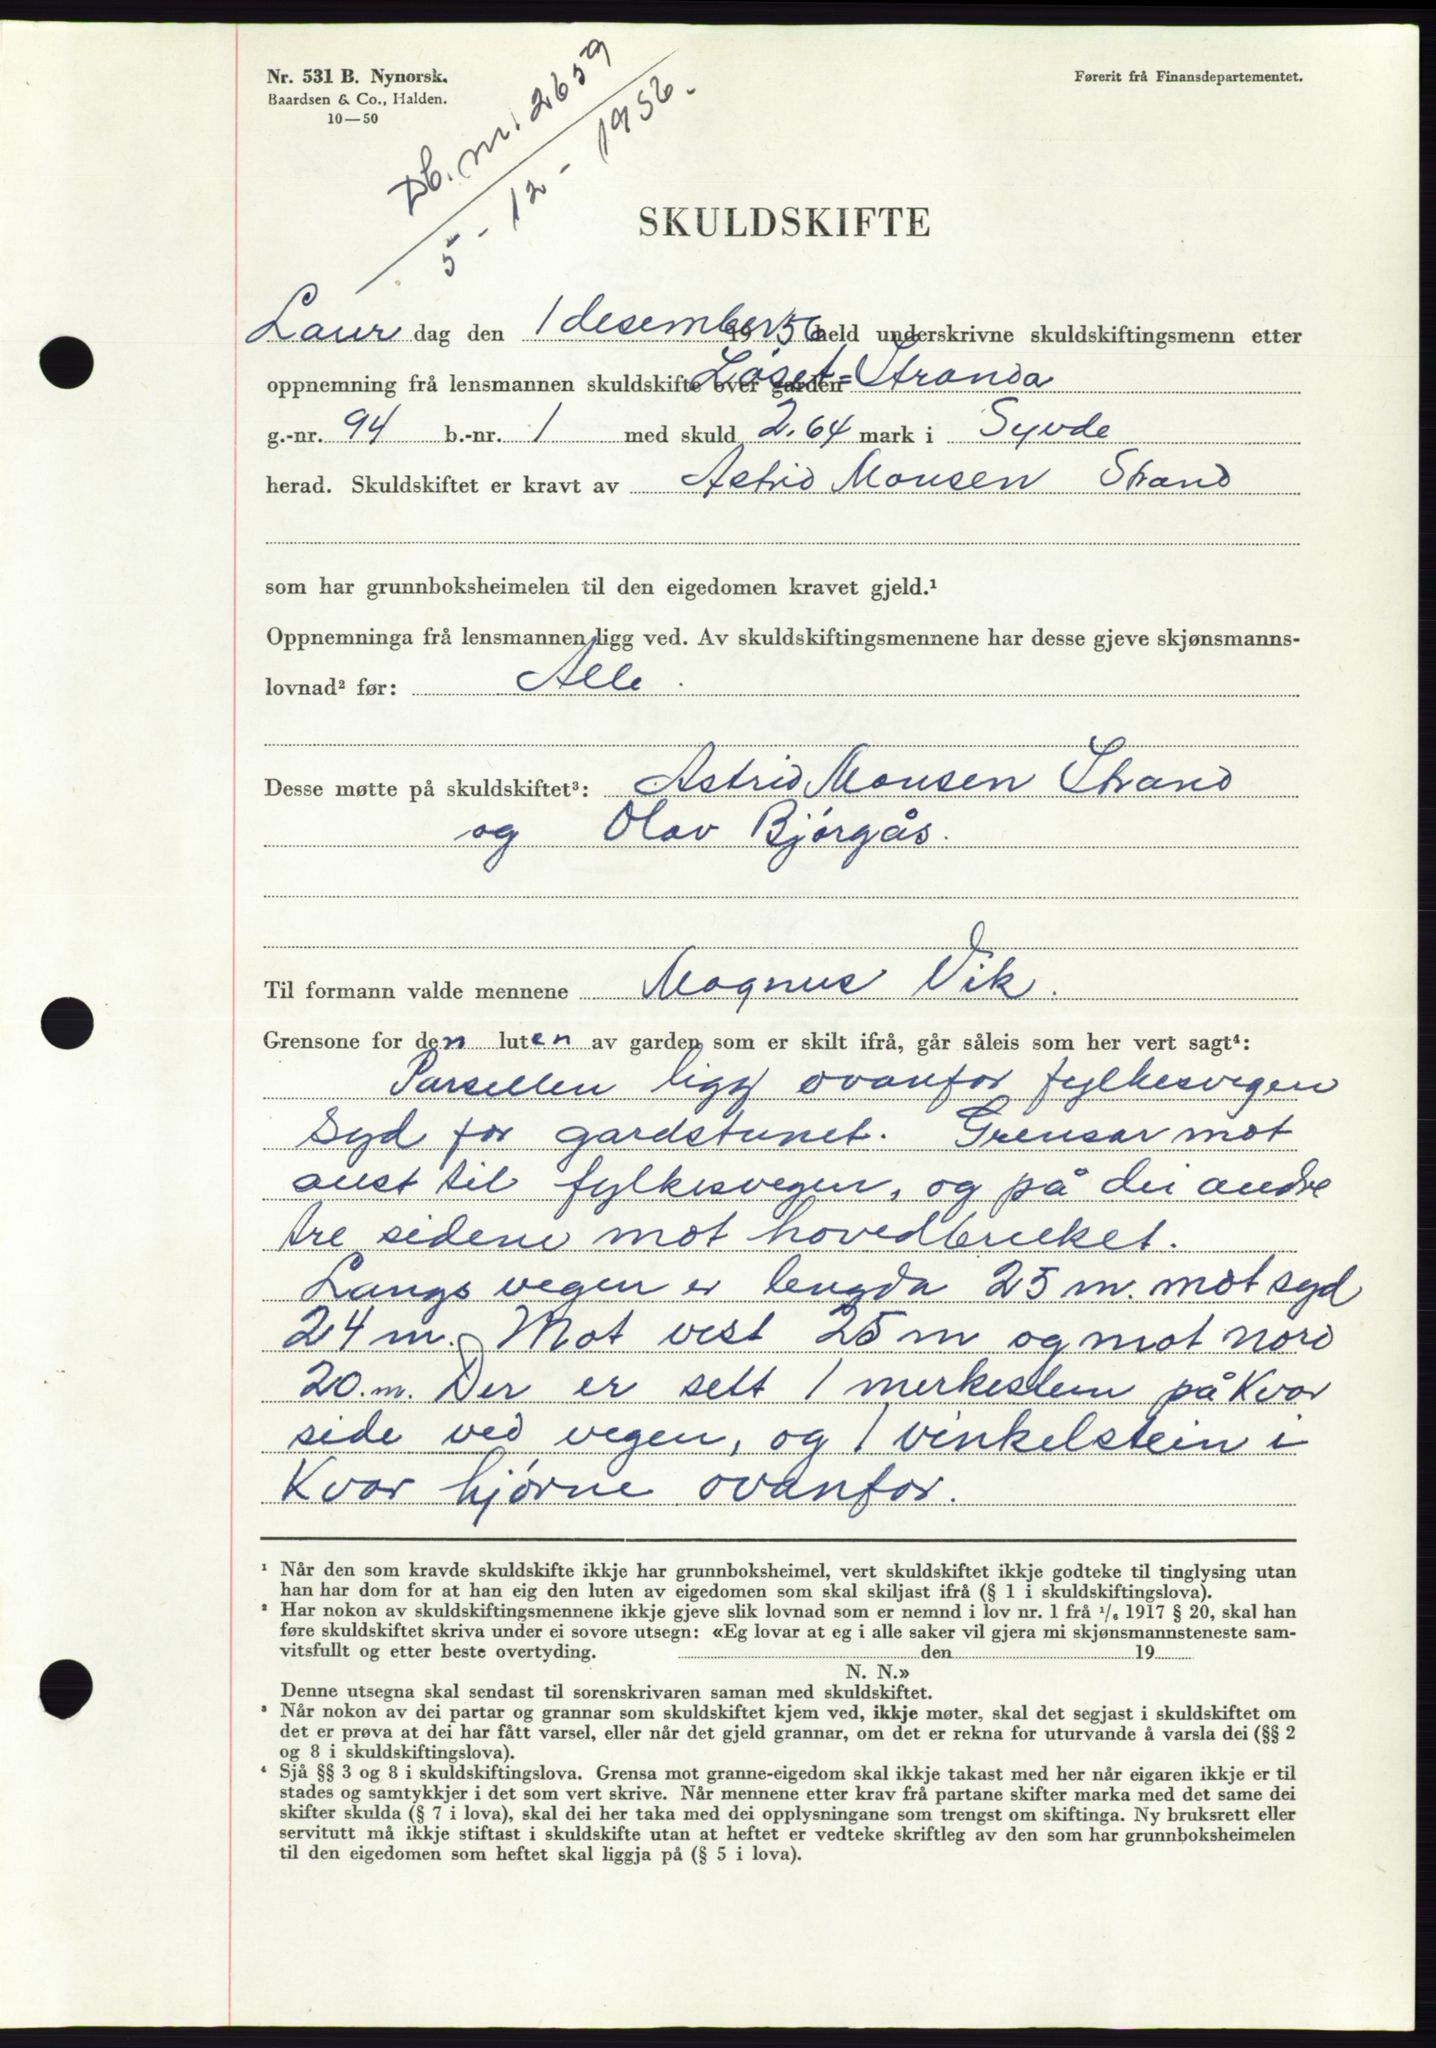 Nr. 531 B. Nynorsk.
Baardsen & Co., Halden.
10—50
Førerit frå Finansdepartementet.
Db. nr. 2659
5 - 12 - 1956.
SKULDSKIFTE
Laur dag den 1 desember 1956 held underskrivne skuldskiftingsmenn etter
oppnemning frå lensmannen skuldskifte over garden Løset-Stranda
g.-nr. 94 b.-nr. 1 med skuld 2.64 mark i Syvde
herad. Skuldskiftet er kravt av Astrid Monsen Strand
som har grunnboksheimelen til den eigedomen kravet gjeld.¹
Oppnemninga frå lensmannen ligg ved. Av skuldskiftingsmennene har desse gjeve skjønsmanns-
lovnad² før: Alle.
Desse møtte på skuldskiftet³: Astrid Monsen Strand
og Olav Bjørgås.
Til formann valde mennene Magnus Vik.
Grensone for den luten av garden som er skilt ifrå, går såleis som her vert sagt⁴:
Parsellen ligg ovanfor fylkesvegen
Syd for gardstunet. Grensar mot
aust til fylkesvegen, og på dei andre
tre sidene mot hovedbruket.
Langs vegen er lengda 25 m. mot syd
24 m. Mot vest 25 m og mot nord
20.m. Der er sett 1 merkestein på Kvar
side ved vegen, og 1 vinkelstein i
Kvar hjørne ovanfor.
¹ Når den som kravde skuldskifte ikkje har grunnboksheimel, vert skuldskiftet ikkje godteke til tinglysing utan
han har dom for at han eig den luten av eigedomen som skal skiljast ifrå (§ 1 i skuldskiftingslova).
² Har nokon av skuldskiftingsmennene ikkje gjeve slik lovnad som er nemnd i lov nr. 1 frå ¹/₆ 1917 § 20, skal han
føre skuldskiftet skriva under ei sovore utsegn: «Eg lovar at eg i alle saker vil gjera mi skjønsmannsteneste sam-
vitsfullt og etter beste overtyding. den 19
N. N.»
Denne utsegna skal sendast til sorenskrivaren saman med skuldskiftet.
³ Når nokon av dei partar og grannar som skuldskiftet kjem ved, ikkje møter, skal det segjast i skuldskiftet om
det er prøva at dei har fått varsel, eller når det gjeld grannar, om det er rekna for uturvande å varsla dei (§§ 2
og 8 i skuldskiftingslova).
⁴ Sjå §§ 3 og 8 i skuldskiftingslova. Grensa mot granne-eigedom skal ikkje takast med her når eigaren ikkje er til
stades og samtykkjer i det som vert skrive. Når mennene etter krav frå partane skifter marka med det same dei
skifter skulda (§ 7 i lova), skal dei her taka med dei opplysningane som trengst om skiftinga. Ny bruksrett eller
servitutt må ikkje stiftast i skuldskifte utan at heftet er vedteke skriftleg av den som har grunnboksheimelen
til den eigedomen som heftet skal liggja på (§ 5 i lova).